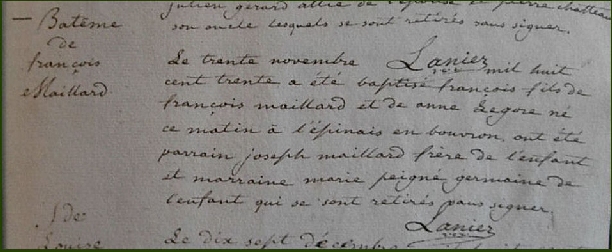 julien gerard allié de l'épouse et pierre
son oncle lesquels se sont retirés sans signer.
Lanier
Batême
de
françois
Maillard
Le trente novembre mil huit
cent trente a été baptisé françois fils de
françois maillard et de anne Legore né
ce matin à l'épinais en bouvron. ont été
parrain joseph maillard frère de l'enfant
et marraine marie peigné germaine de
l'enfant qui se sont retirés sans signer
Lanier
de
Louise
Le dix sept décembre